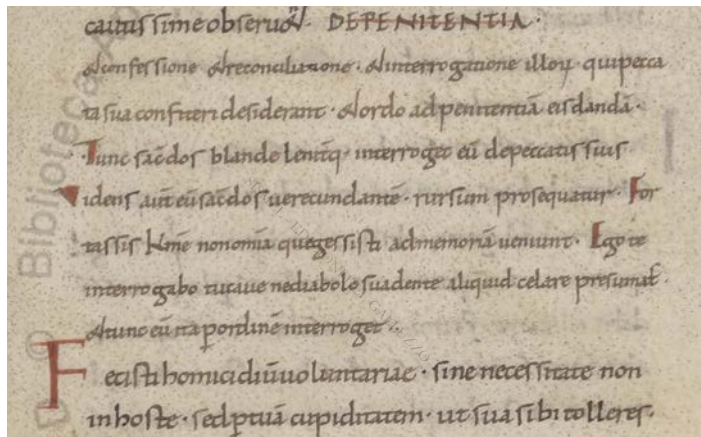 cautissime obseruet. DE PENITENTIA.
& confessione & reconciliatione. & interrogatione illoꝝ. qui pecca
ta sua confiteri desiderant. & ordo ad penitentiā eis dandā.
Tunc sac̄dos blande lenitq; interroget eū de peccatis suis
Videns aut̄ eū sac̄dos uerecundantē. rursum prosequatur. For
tassis k̄me non om̄ia que gessisti ad memoriā ueniunt. Ego te
interrogabo tu caue ne diabolo suadente aliquid celare presumas.
& tunc eū ita ꝑ ordinē interroget.
Fecisti homicidiū uoluntariae. sine necessitate non
in hoste. sed ꝓ tuā cupiditatem. ut sua sibi tolleres.